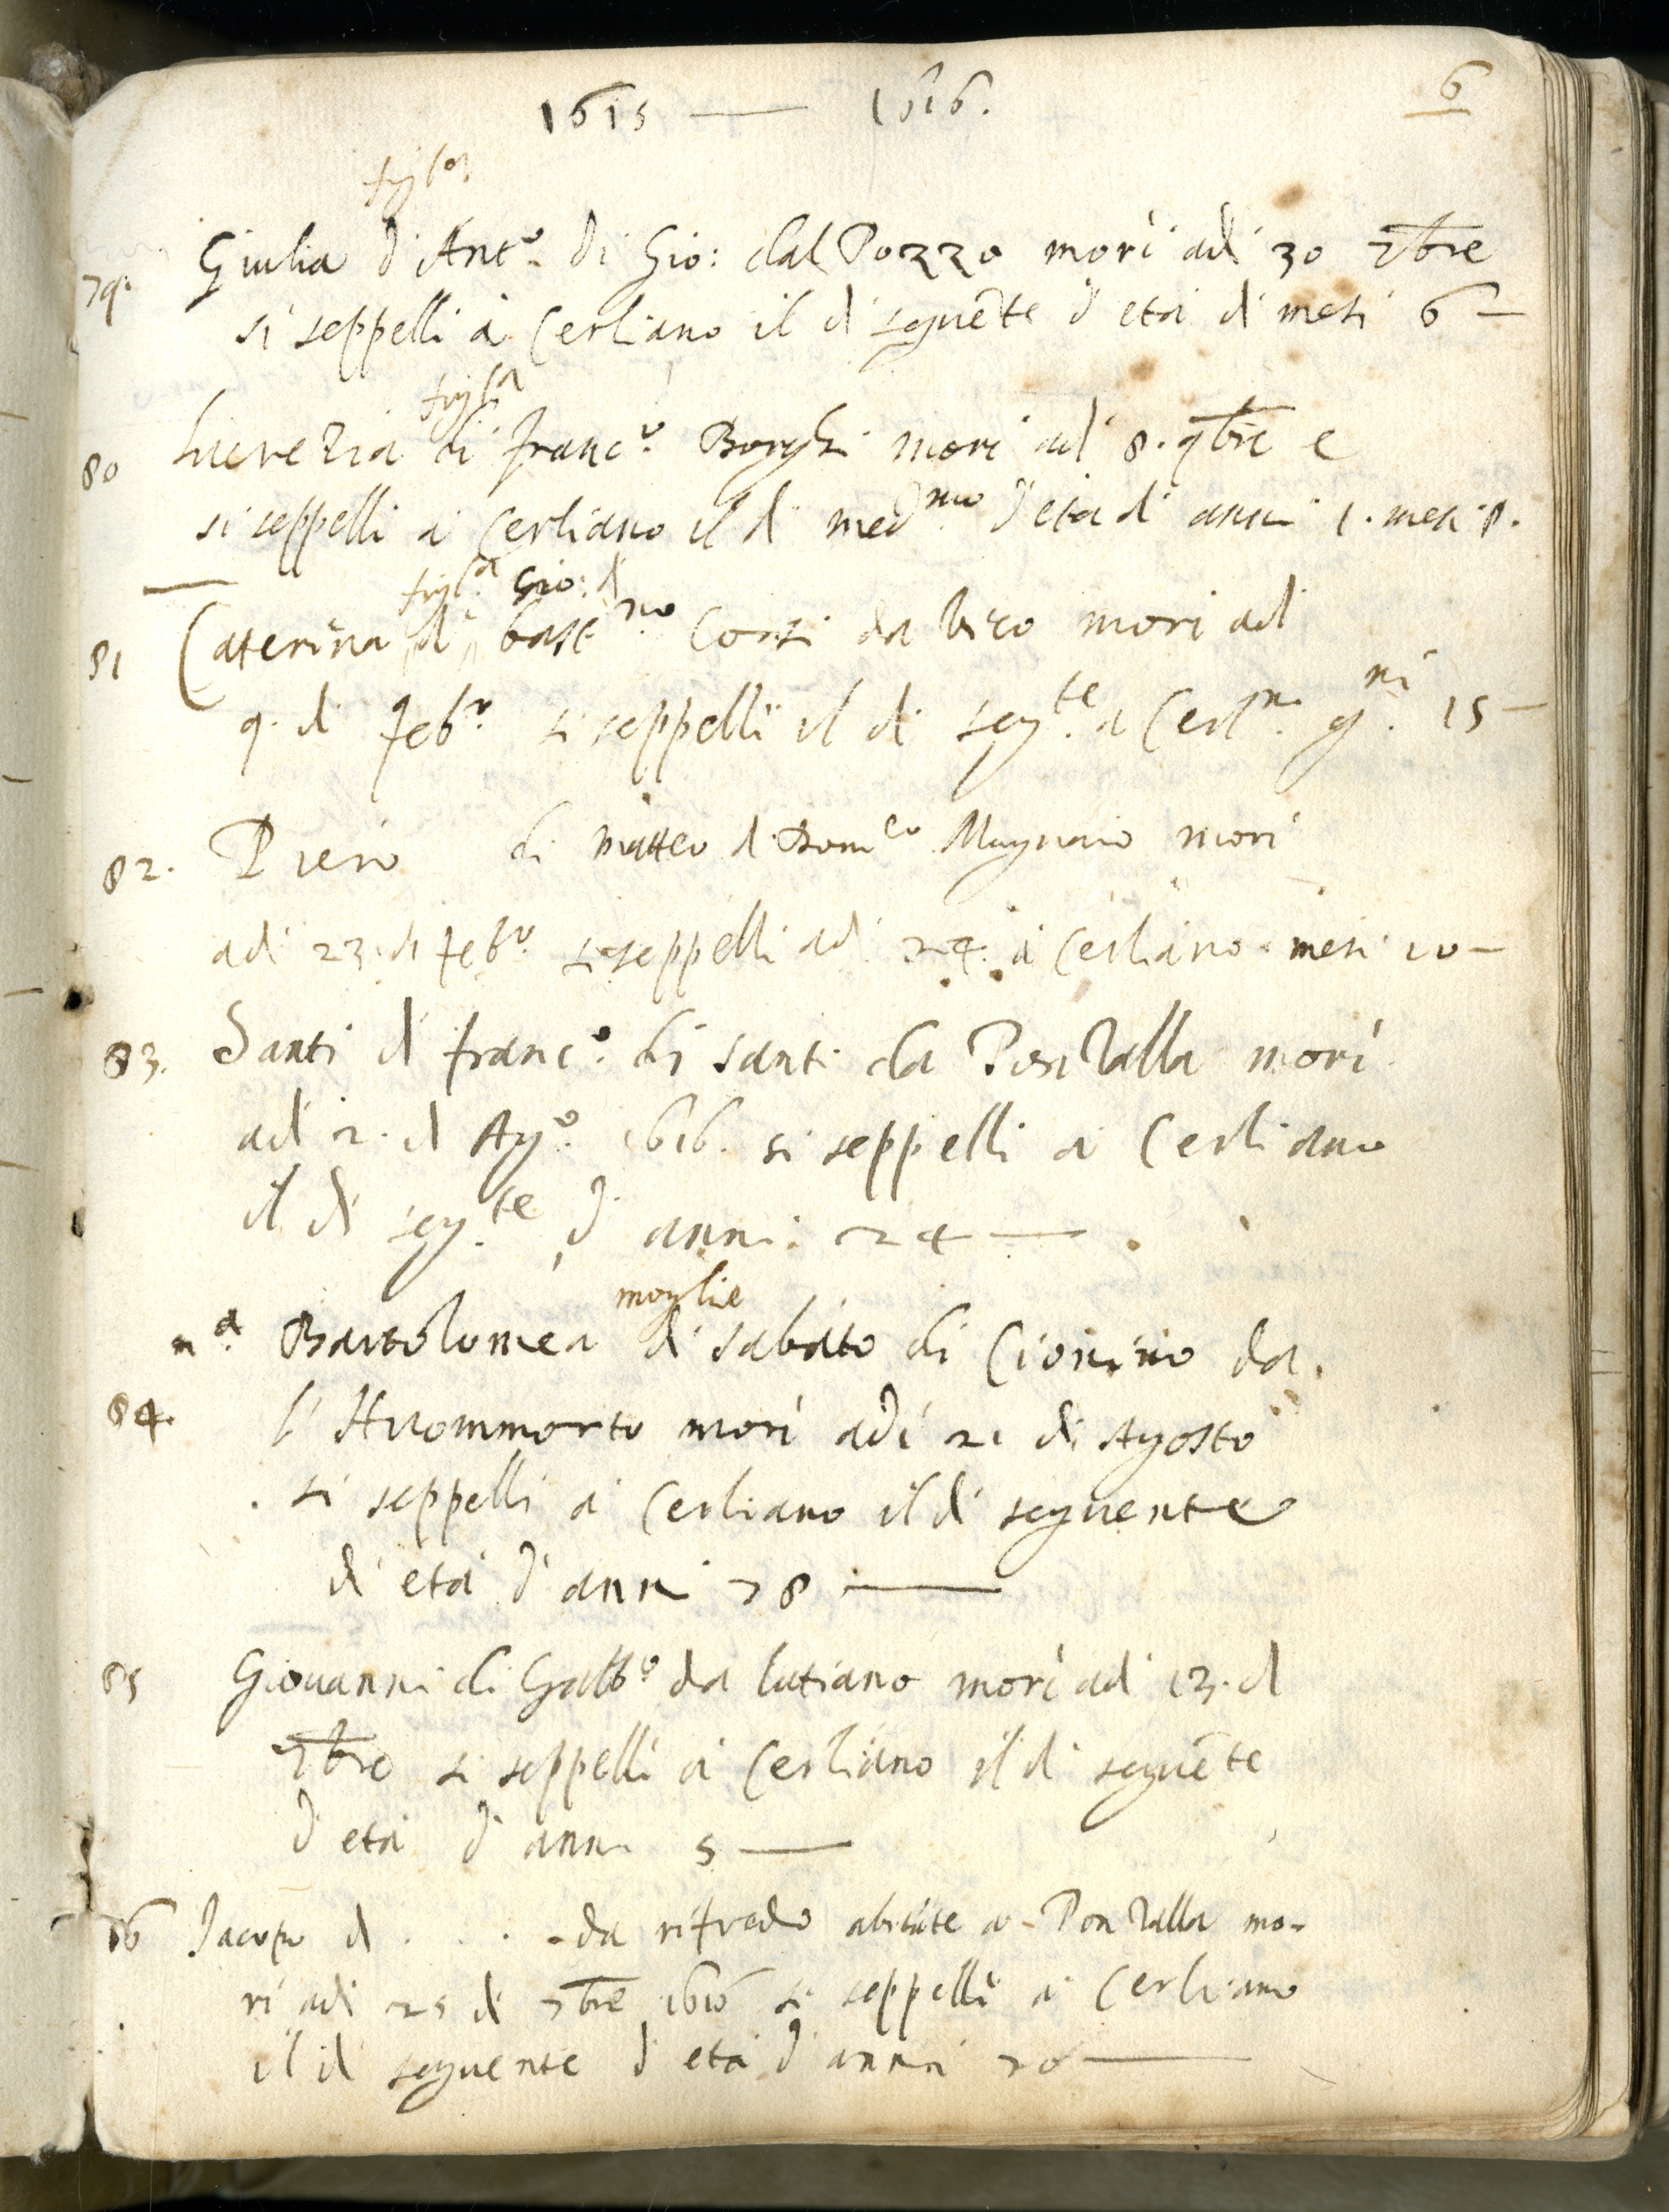 1615 — 1616.
6
figl.a
79. Giulia d'Ant.o di Gio: dal Pozzo morì adì 30 7bre
si seppellì à Cerliano il dì seguẽte d'età di mesi 6 —
figl.a
80 Lucrezia di franc.o Borghi morì adì 8. 9bre e
si seppellì à Cerliano il dì med.mo d'età di anni 1. mesi 8.
figl.a Gio: di
81 Caterina di bast.no Corsi da Vico morì adì
9. di feb.o si seppellì il dì seg.te a Cerl.no g.ni 15 —
82. Piero di matteo di Dom.co Magnaio morì
adì 23. di feb.o si seppellì adì 24. à Cerliano mesi 10 —
83. Santi di franc.o di santi da Ponzalla morì
adì 2. di Ag.o 1616. si seppellì à Cerliano
il dì seg.te d'anni: 24 —
moglie
m.a Bartolomea di sabato di Cionino da
84. l'Huommorto morì adì 21 di Agosto
si seppellì à Cerliano il dì seguente
di età d'anni 78 —
85 Giouanni di Galb.o da lutiano morì adì 13. di
7bre si seppellì à Cerliano il dì seguẽte
d'età d'anni 5 —
86 Jacopo di . . . . da rifredo abitãte a Ponzalla mo-
rì adì 25 di 7bre 1616 si seppellì à Cerliano
il dì seguente d'età d'anni 70 —